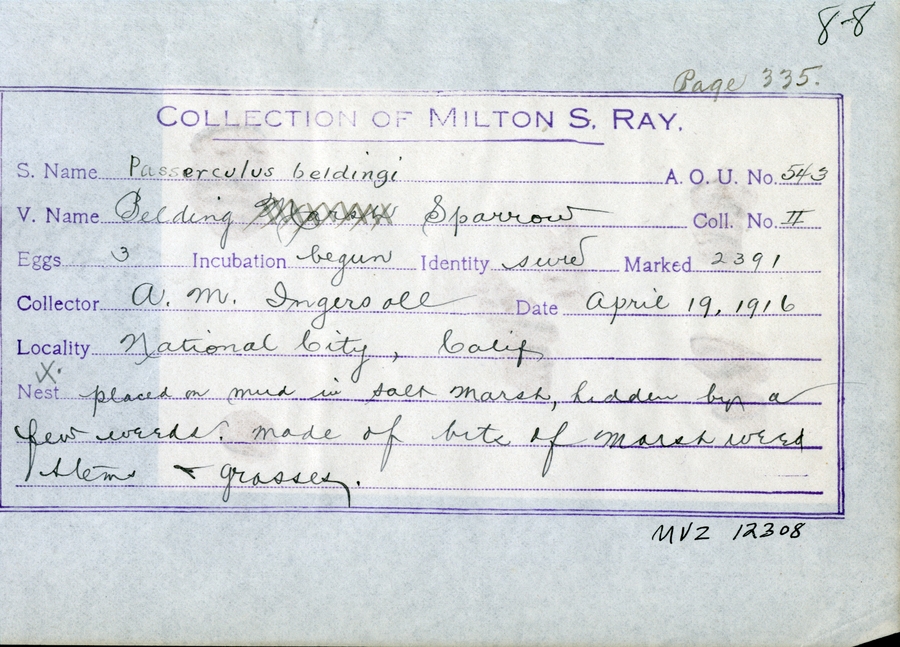 8-8
Page 335.
COLLECTION OF MILTON S. RAY.
S. Name Passerculus beldingi A. O. U. No. 543
V. Name Belding Marsh Sparrow Coll. No. II
Eggs 3 Incubation begun Identity sure Marked 2391
Collector A. M. Ingersoll Date April 19, 1916
Locality National City, Calif
X.
Nest placed on mud in salt marsh, hidden by a
few weeds. made of bits of marsh weed
stems & grasses.
MVZ 12308